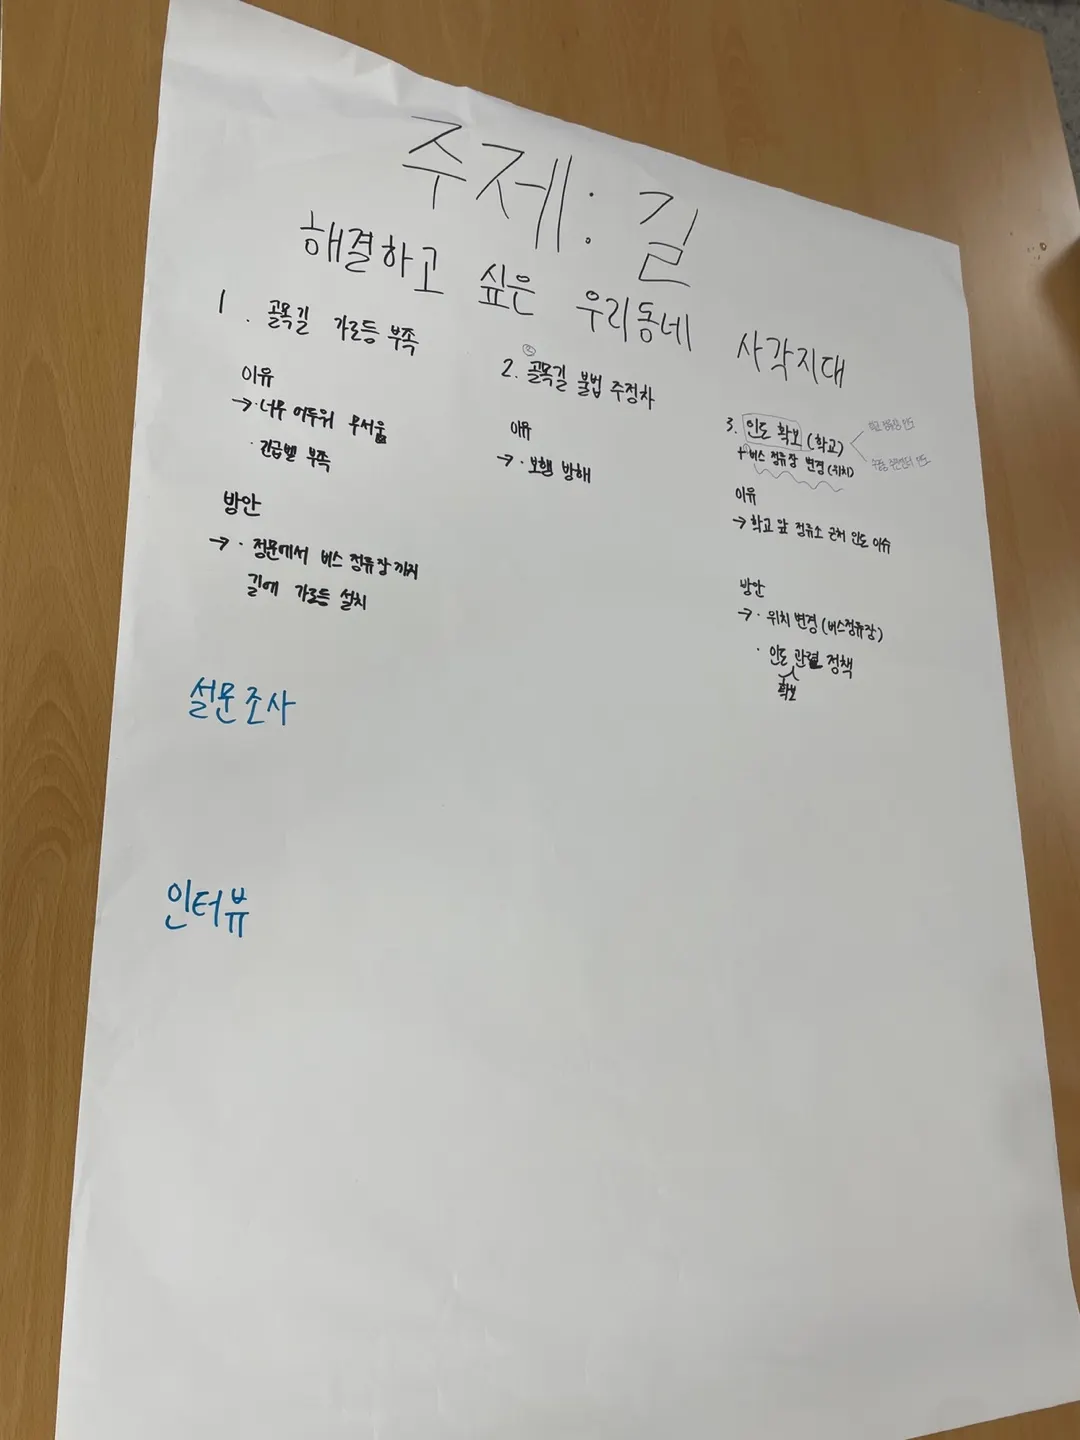 주제: 길
해결하고 싶은 우리동네 사각지대
1. 골목길 가로등 부족
이유
→ · 너무 어두워 무서움
· 긴급벨 부족
방안
→ · 정문에서 버스 정류장 까지
길에 가로등 설치
2. 골목길 불법 주정차
이유
→ · 보행 방해
3. 인도 확보 (학교)
+ 버스 정류장 변경 (위치)
이유
→ 학교 앞 정류소 근처 인도 이슈
방안
→ · 위치 변경 (버스정류장)
· 인도 관련 정책
확보
설문조사
인터뷰